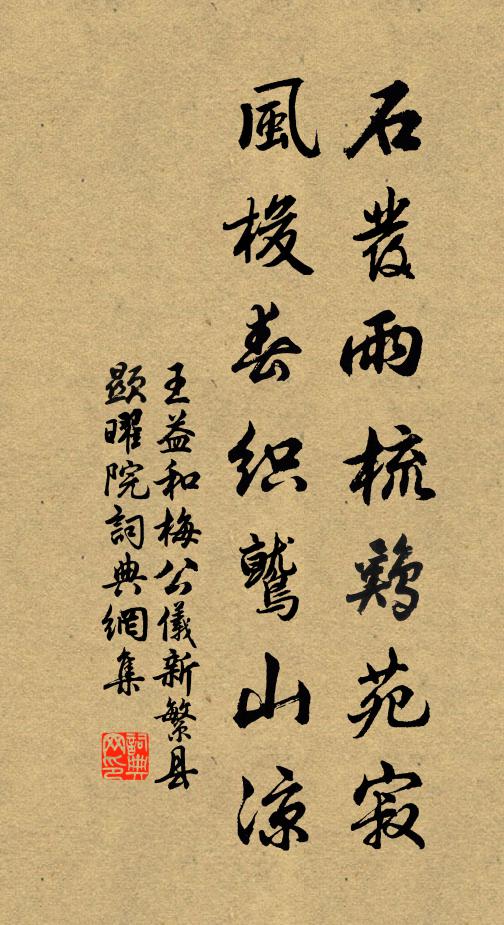 石發雨梳鷄苑寂
風梭春織鷲山涼
王益和梅公儀新繁县
顯曜院詞典網集
詞典网印